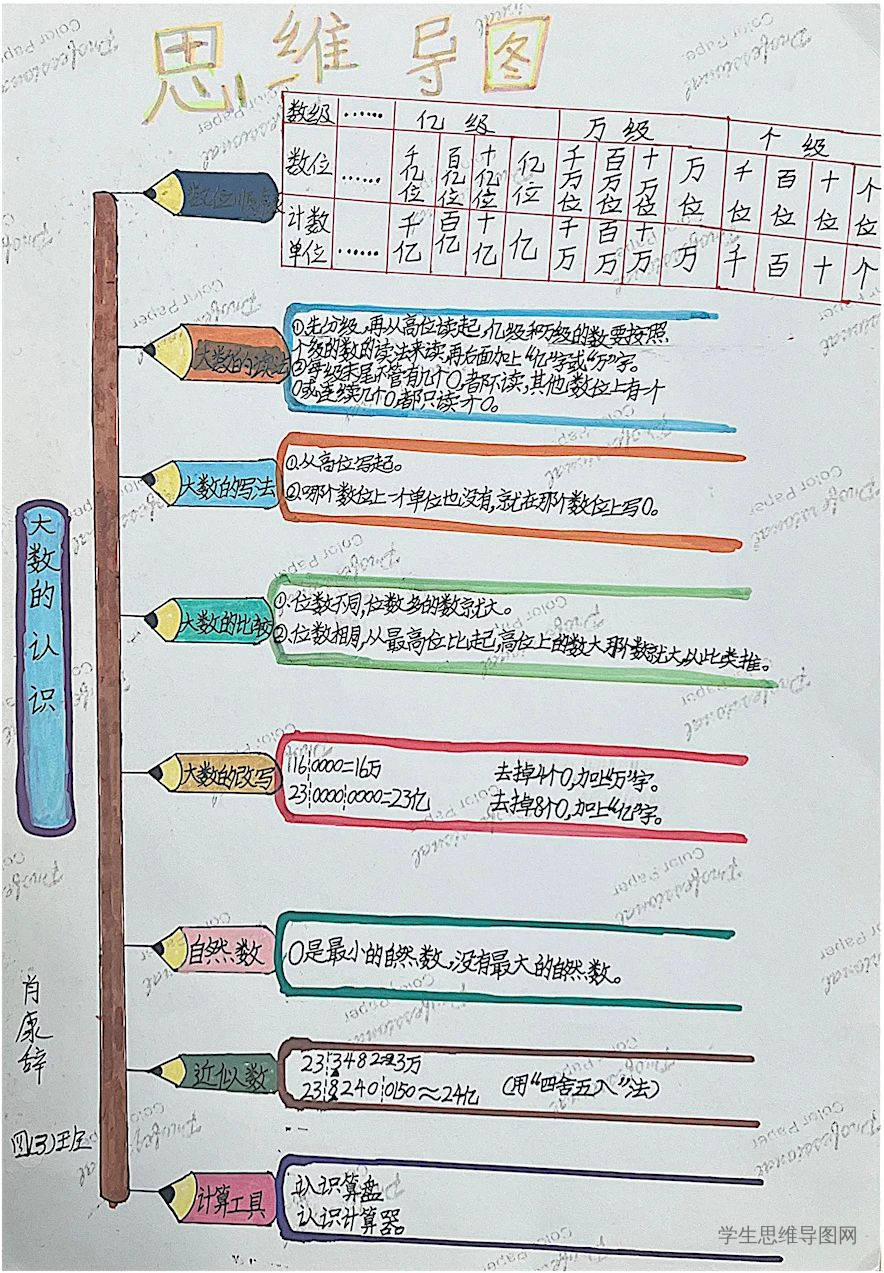 思维导图
数级 …… 亿级 万级 个级
数位 …… 千亿位 百亿位 十亿位 亿位 千万位 百万位 十万位 万位 千位 百位 十位 个位
计数单位 …… 千亿 百亿 十亿 亿 千万 百万 十万 万 千 百 十 个
数位顺
大数的读法
①先分级,再从高位读起,亿级和万级的数要按照
个级的数的读法来读,再后面加上“亿”字或“万”字。
②每级末尾不管有几个0,都不读,其他数位上有一个
0或连续几个0,都只读一个0。
大数的写法
①.从高位写起。
②.哪个数位上一个单位也没有,就在那个数位上写0。
大数的认识
大数的比较
①.位数不同,位数多的数就大。
②.位数相同,从最高位比起,高位上的数大那个数就大,以此类推。
大数的改写
116|0000=16万 去掉4个0,加上“万”字。
23|0000|0000=23亿 去掉8个0,加上“亿”字。
自然数
0是最小的自然数,没有最大的自然数。
肖康辞
近似数
23|3482≈23万
23|8240|0150≈24亿 (用“四舍五入”法)
四(3)班
计算工具
认识算盘
认识计算器。
Professional
Color Paper
学生思维导图网